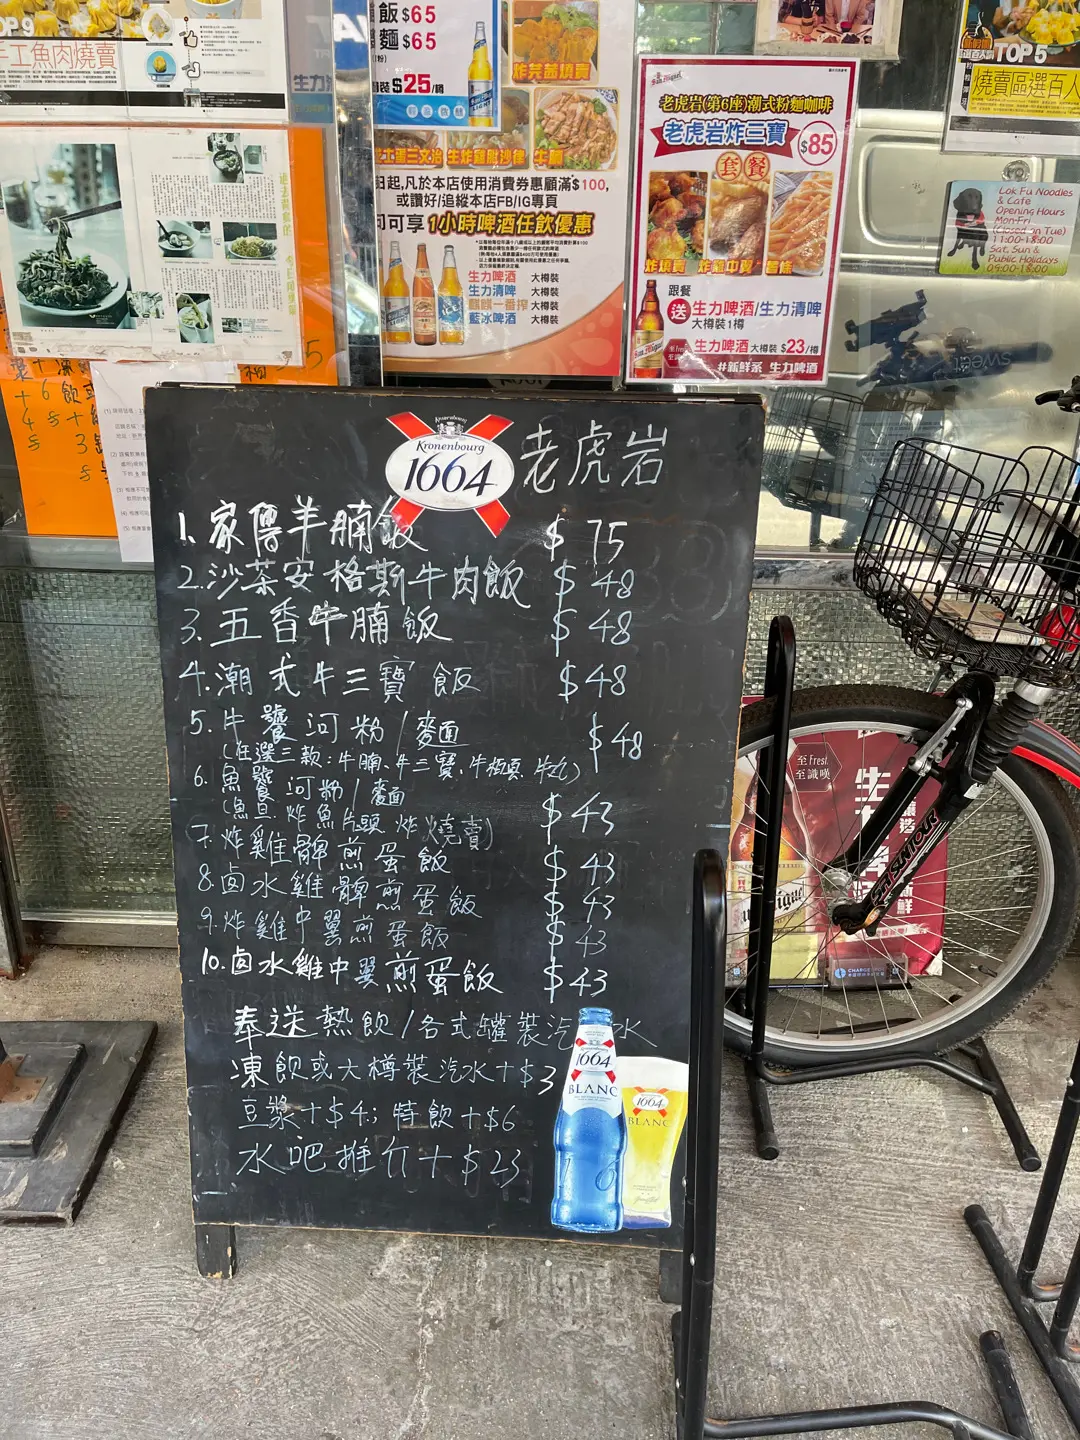 TOP9
手工魚肉燒賣
飯 $65
麵 $65
$25/樽
炸芫荽燒賣
牛腩
凡於本店使用消費券惠顧滿$100,
或讚好/追縱本店FB/IG專頁
即可享1小時啤酒任飲優惠
生力啤酒 大樽裝
生力清啤 大樽裝
麒麟一番搾 大樽裝
藍冰啤酒 大樽裝
San Miguel
老虎岩(第6座)潮式粉麵咖啡
老虎岩炸三寶 $85
套餐
炸燒賣 炸雞中翼 薯條
跟餐
送 生力啤酒/生力清啤
大樽裝1樽
生力啤酒 大樽裝 $23/樽
#新鮮系 生力啤酒
TOP5
燒賣區選百人
Lok Fu Noodles
& Cafe
Opening Hours
Mon-Fri
(Closed on Tue)
11:00-18:00
Sat, Sun &
Public Holidays
09:00-18:00
Kronenbourg
1664
老虎岩
1. 家傳羊腩飯 $75
2. 沙茶安格斯牛肉飯 $48
3. 五香牛腩飯 $48
4. 潮式牛三寶飯 $48
5. 牛饗河粉/麵 $48
(任選三款:牛腩、牛三寶、牛丸)
6. 魚饗河粉/麵 $43
(魚旦 炸魚片頭 炸燒賣)
7. 炸雞髀煎蛋飯 $43
8. 卤水雞髀煎蛋飯 $43
9. 炸雞中翼煎蛋飯 $43
10. 卤水雞中翼煎蛋飯 $43
奉送熱飲/各式罐裝汽水
凍飲或大樽裝汽水+$3
豆漿+$4; 特飲+$6
水吧推介+$23
1664
BLANC
1664
BLANC
至Fresh
至識嘆
SR SUNTOUR